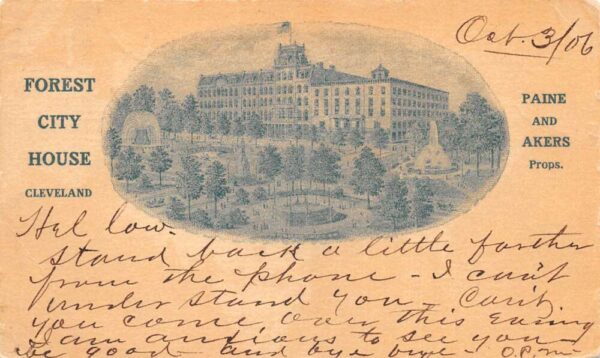 Oct. 3/06
FOREST
CITY
HOUSE
CLEVELAND
PAINE
AND
AKERS
Props.
Hel low.
Stand back a little farther
from the phone - I can't
understand you - Can't
you come over this evening
I am anxious to see you
be good - and bye bye -